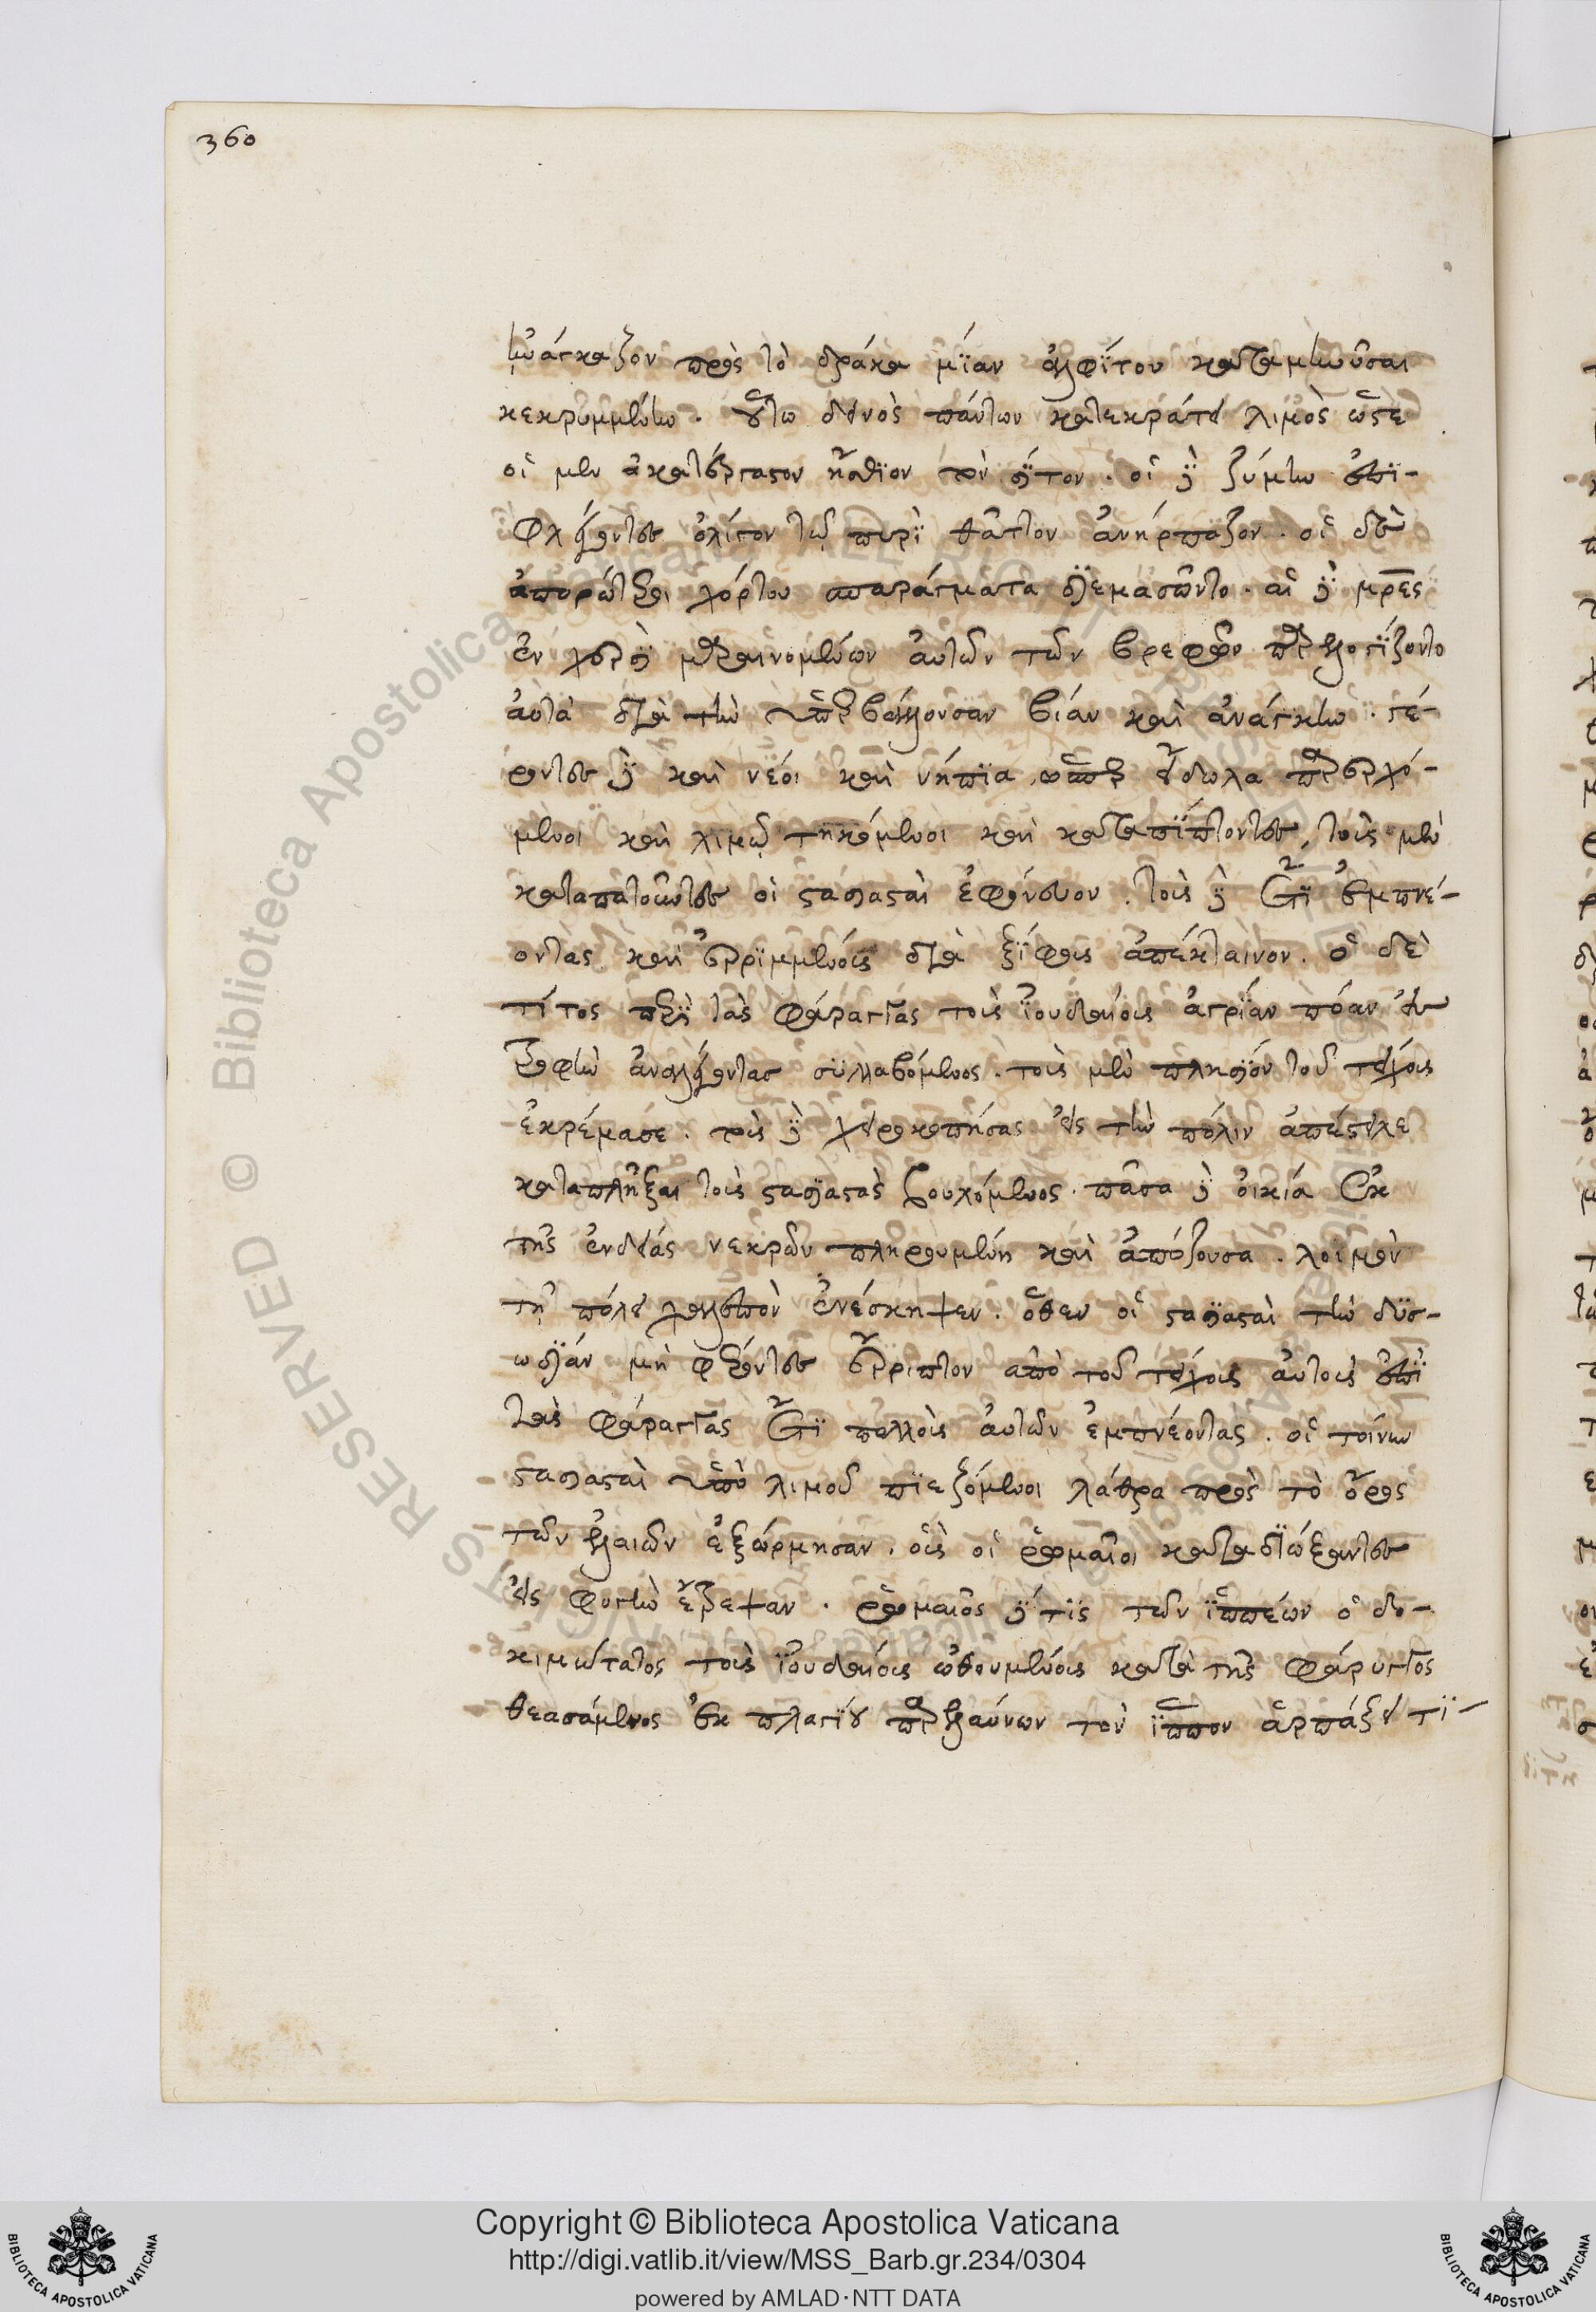 360
ἠνάγκαζον πρὸς τὸ δράκα μίαν ἀλφίτου καταμηνῦσαι
κεκρυμμένην. οὕτω δεινὸς πάντων κατεκράτει λιμὸς ὥστε
οἱ μὲν ἀκατέργαστον ἤσθιον τὸν σῖτον. οἱ δὲ ζύμην ἐπι-
φλέξαντες ὀλίγον τῷ πυρὶ θᾶττον ἀνήρπαζον. οἱ δὲ
ἀπορώτεροι χόρτου σπαράγματα διεμασῶντο. αἱ δὲ μρ̅ες
ἐν χερσὶ μαραινομένων αὐτῶν τῶν βρεφῶν παρελογίζοντο
αὐτὰ διὰ τὴν ὑπερβάλλουσαν βίαν καὶ ἀνάγκην. γέ-
ροντες δὲ καὶ νέοι καὶ νήπια ὥσπερ εἴδωλα περιερχό-
μενοι καὶ λιμῷ τηκόμενοι καὶ καταπίπτοντες, τοὺς μὲν
καταπατοῦντες οἱ στασιασταὶ ἐφόνευον. τοὺς δὲ ἔτι ἐμπνέ-
οντας καὶ ἐρριμμένους διὰ ξίφους ἀπέκταινον. ὁ δὲ
τίτος περὶ τὰς φάραγγας τοὺς ἰουδαίους ἀγρίαν πόαν εἰς
τροφὴν ἀναλέγοντας συλλαβόμενος. τοὺς μὲν πλησίον τοῦ τείχους
ἐκρέμασε. τοὺς δὲ χειροκοπήσας εἰς τὴν πόλιν ἀπέστειλε
καταπλῆξαι τοὺς στασιαστὰς βουλόμενος. πᾶσα δὲ οἰκία ἐκ
τῆς ἐνδείας νεκρῶν πληρουμένη καὶ ἀπόζουσα. λοιμὸν
τῇ πόλει χαλεπὸν ἐνέσκηψεν. ὅθεν οἱ στασιασταὶ τὴν δυσ-
ωδίαν μὴ φέροντες ἔρριπτον ἀπὸ τοῦ τείχους αὐτοὺς ἐπὶ
τὰς φάραγγας ἔτι πολλοὺς αὐτῶν ἐμπνέοντας. οἱ τοίνυν
στασιασταὶ ὑπὸ λιμοῦ πιεζόμενοι λάθρα πρὸς τὸ ὄρος
τῶν ἐλαιῶν ἐξώρμησαν. οὓς οἱ ῥωμαῖοι καταδιώξαντες
εἰς φυγὴν ἔτρεψαν. ῥωμαῖος δέ τις τῶν ἱππέων ὁ δο-
κιμώτατος τοὺς ἰουδαίους ὠθουμένους κατὰ τῆς φάρυγγος
θεασάμενος ἐκ πλαγίου παρελαύνων τὸν ἵππον ἁρπάζει τι-
Copyright © Biblioteca Apostolica Vaticana
http://digi.vatlib.it/view/MSS_Barb.gr.234/0304
powered by AMLAD·NTT DATA